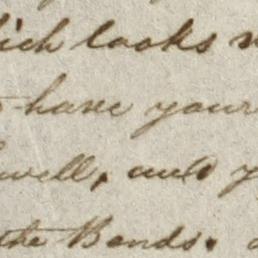 looks
have your
well, and
the Bonds.